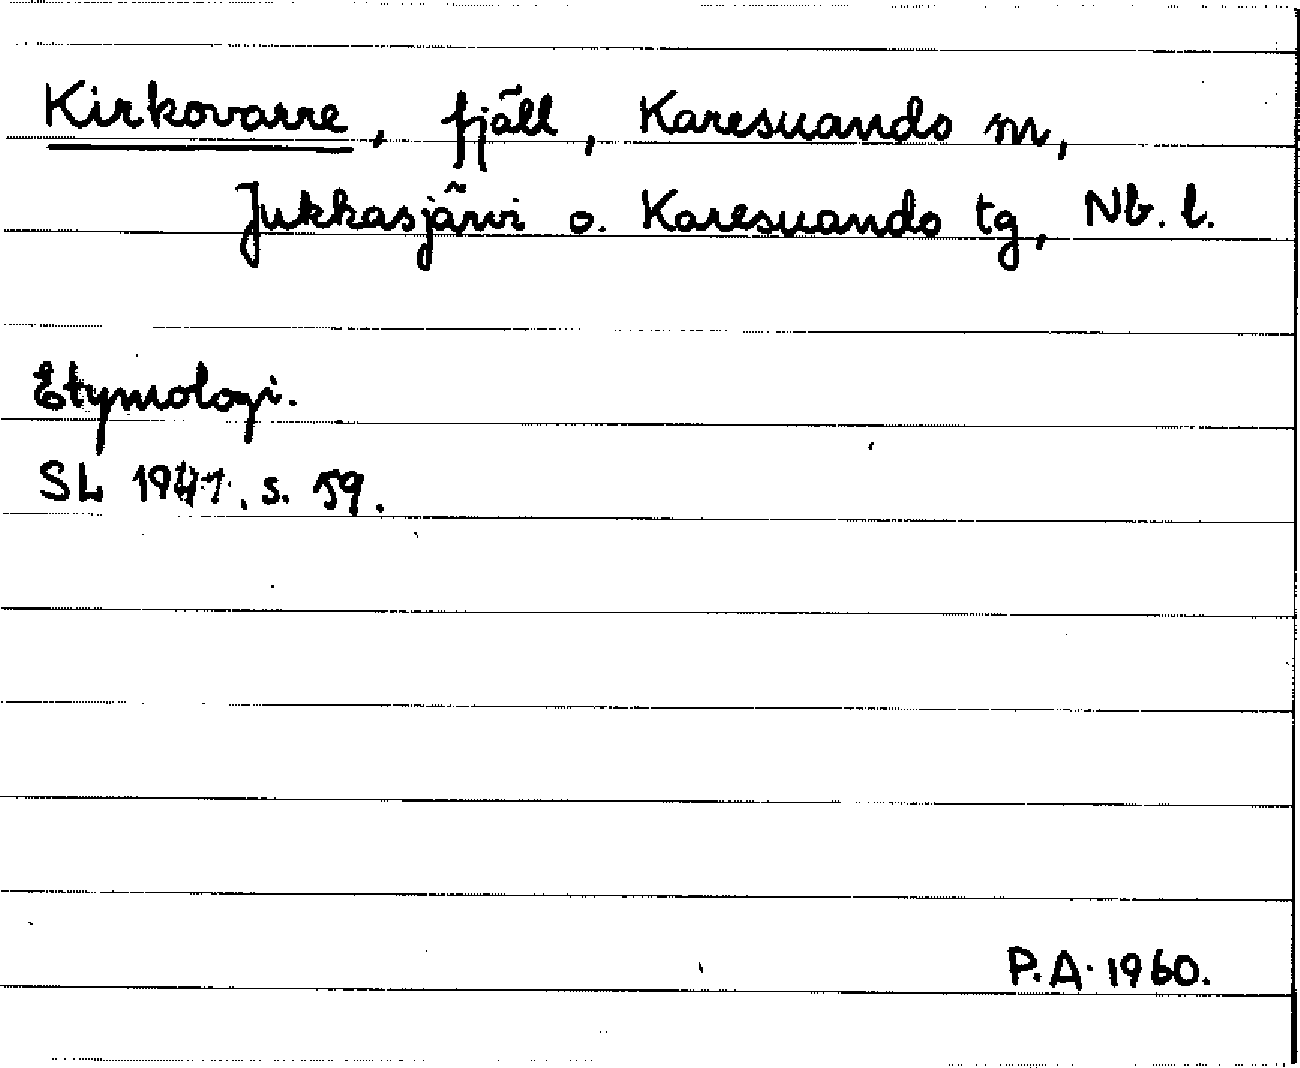 Kirkovarre, fjäll, Karesuando m,
Jukkasjärvi o. Karesuando tg, Nb. l.
Etymologi.
SL 1941, s. 59.
P.A. 1960.